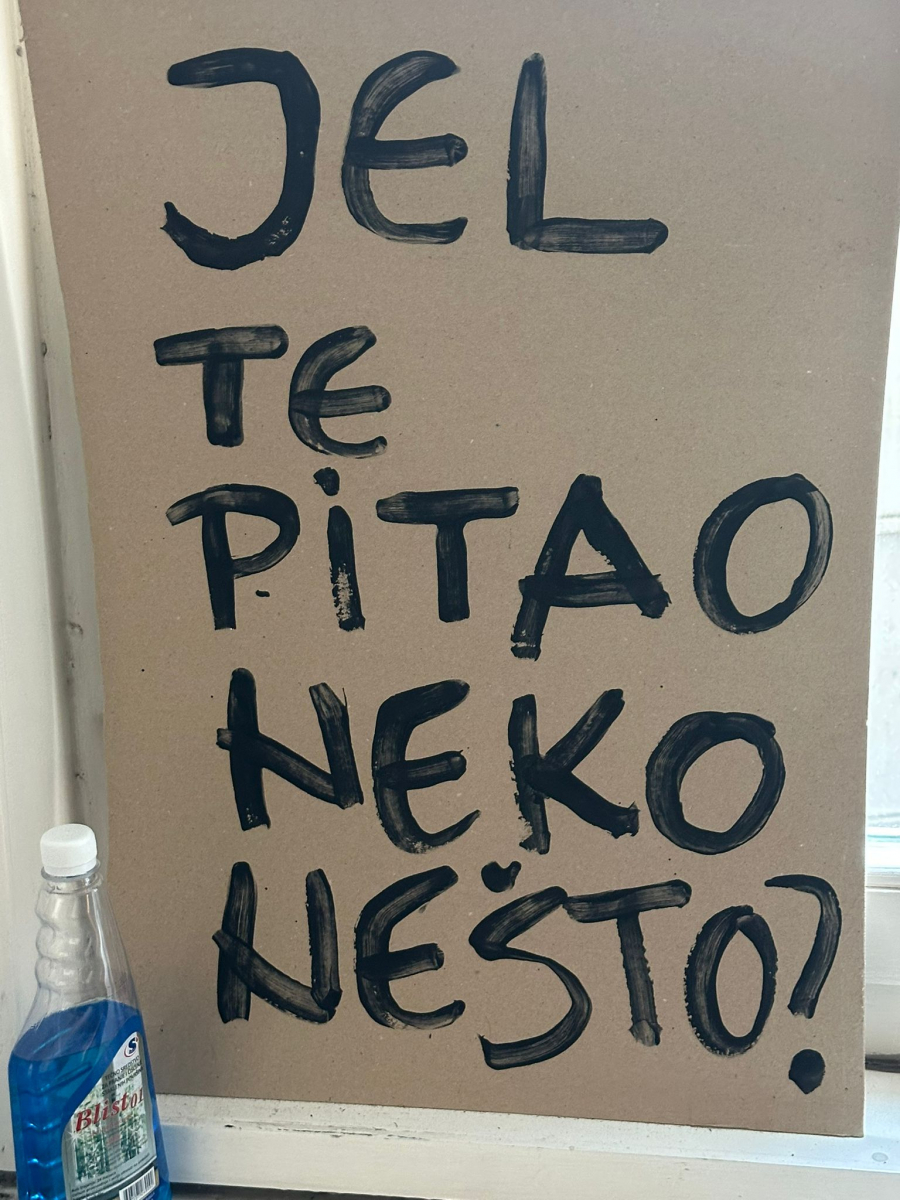 JEL
TE
PiTAO
NEKO
NEŠTO?
Blistol